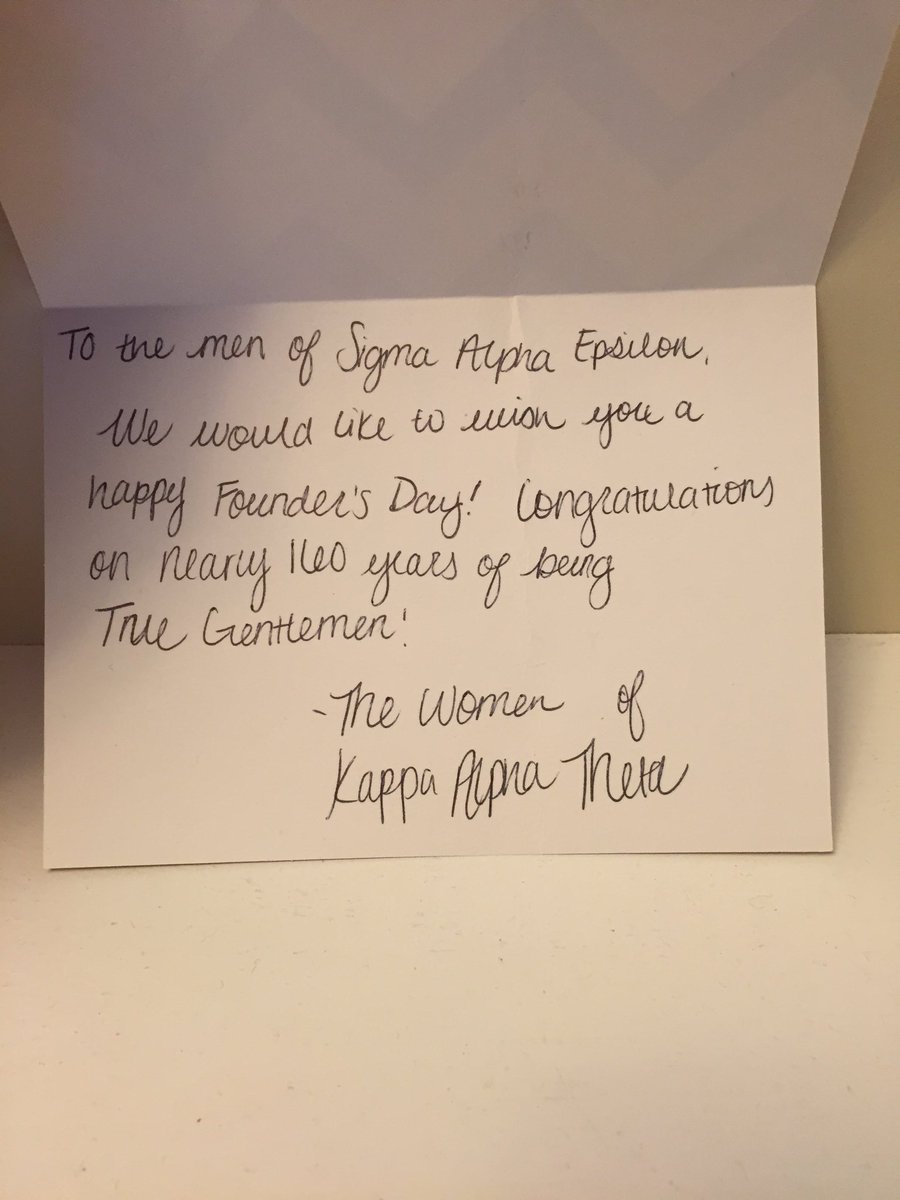 To the men of Sigma Alpha Epsilon,
We would like to wish you a
happy Founder's Day! Congratulations
on nearly 160 years of being
True Gentlemen!
-The Women of
Kappa Alpha Theta